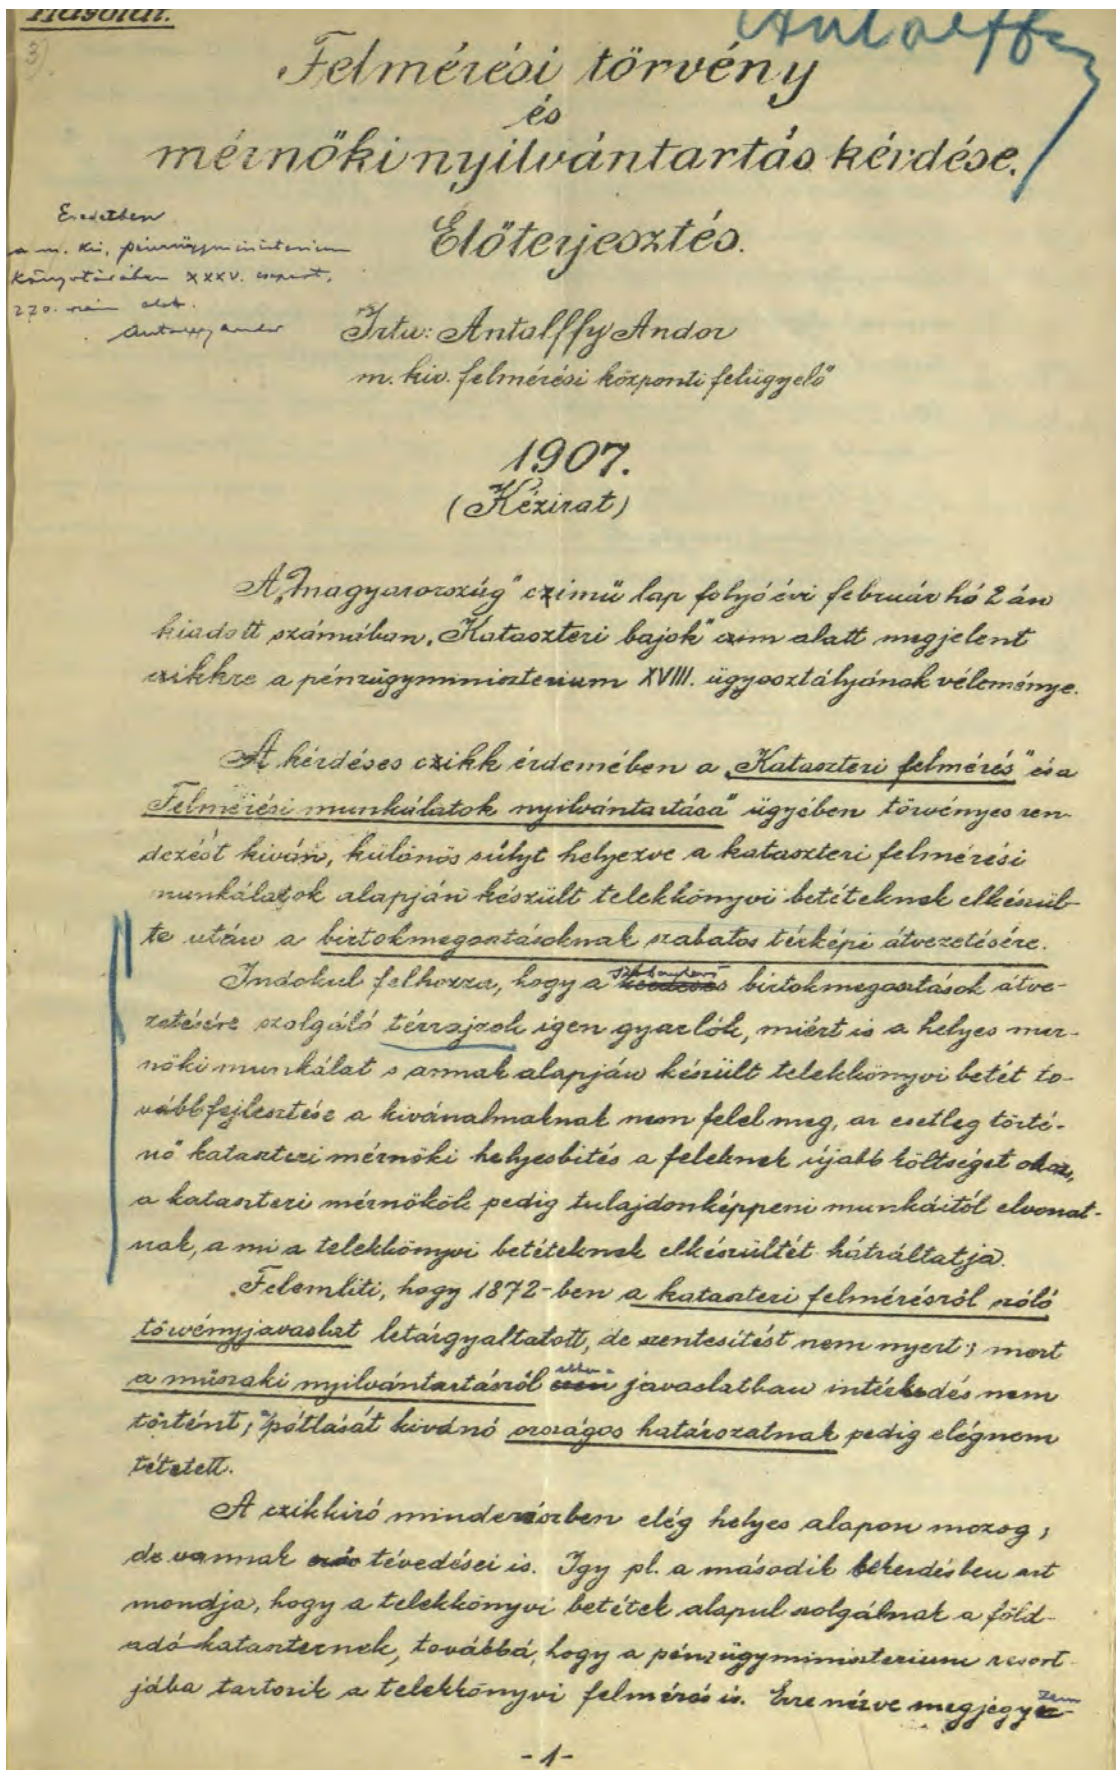 Másolat.
3)
Antalffy
Felmérési törvény
és
mérnöki nyilvántartás kérdése.
Előterjesztés.
Eredetben
a m. kir. pénzügyministerium
könyvtárában XXXV. csoport,
270. szám alatt.
Antalffy Andor
Irta: Antalffy Andor
m. kir. felmérési központi felügyelő
1907.
(Kézirat)
A „Magyarország" czimü lap folyó évi február hó 2 án
kiadott számában „Kataszteri bajok" czim alatt megjelent
czikkre a pénzügyministerium XVIII. ügyosztályának véleménye.
A kérdéses czikk érdemében a „Kataszteri felmérés" és a
Felmérési munkálatok nyilvántartása" ügyében törvényes ren-
dezést kiván, különös súlyt helyezve a kataszteri felmérési
munkálatok alapján készült telekkönyvi betéteknek elkészül-
te után a birtokmegosztásoknak szabatos térképi átvezetésére.
Indokul felhozza, hogy a birtokmegosztások átve-
zetésére szolgáló térrajzok igen gyarlók, miért is a helyes mér-
nöki munkálat s annak alapján készült telekkönyvi betét to-
vábbfejlesztése a kivánalmaknak nem felel meg, az esetleg törté-
nő kataszteri mérnöki helyesbités a feleknek újabb költséget okoz,
a kataszteri mérnökök pedig tulajdonképpeni munkáitól elvonat-
nak, a mi a telekkönyvi betéteknek elkészültét hátráltatja.
Felemliti, hogy 1872-ben a kataszteri felmérésről szóló
törvényjavaslat letárgyaltatott, de szentesítést nem nyert; mert
a müszaki nyilvántartásról ebben javaslatban intézkedés nem
történt; pótlását kivánó országos határozatnak pedig elégnem
tétetett.
A czikkiró mindenesörben elég helyes alapon mozog;
de vannak tévedései is. Igy pl. a második bekezdésben azt
mondja, hogy a telekkönyvi betétek alapul szolgálnak a föld-
adó kataszternek, továbbá, hogy a pénzügyministerium resort-
jába tartozik a telekkönyvi felmérés is. Erre nézve megjegyzem
-1-